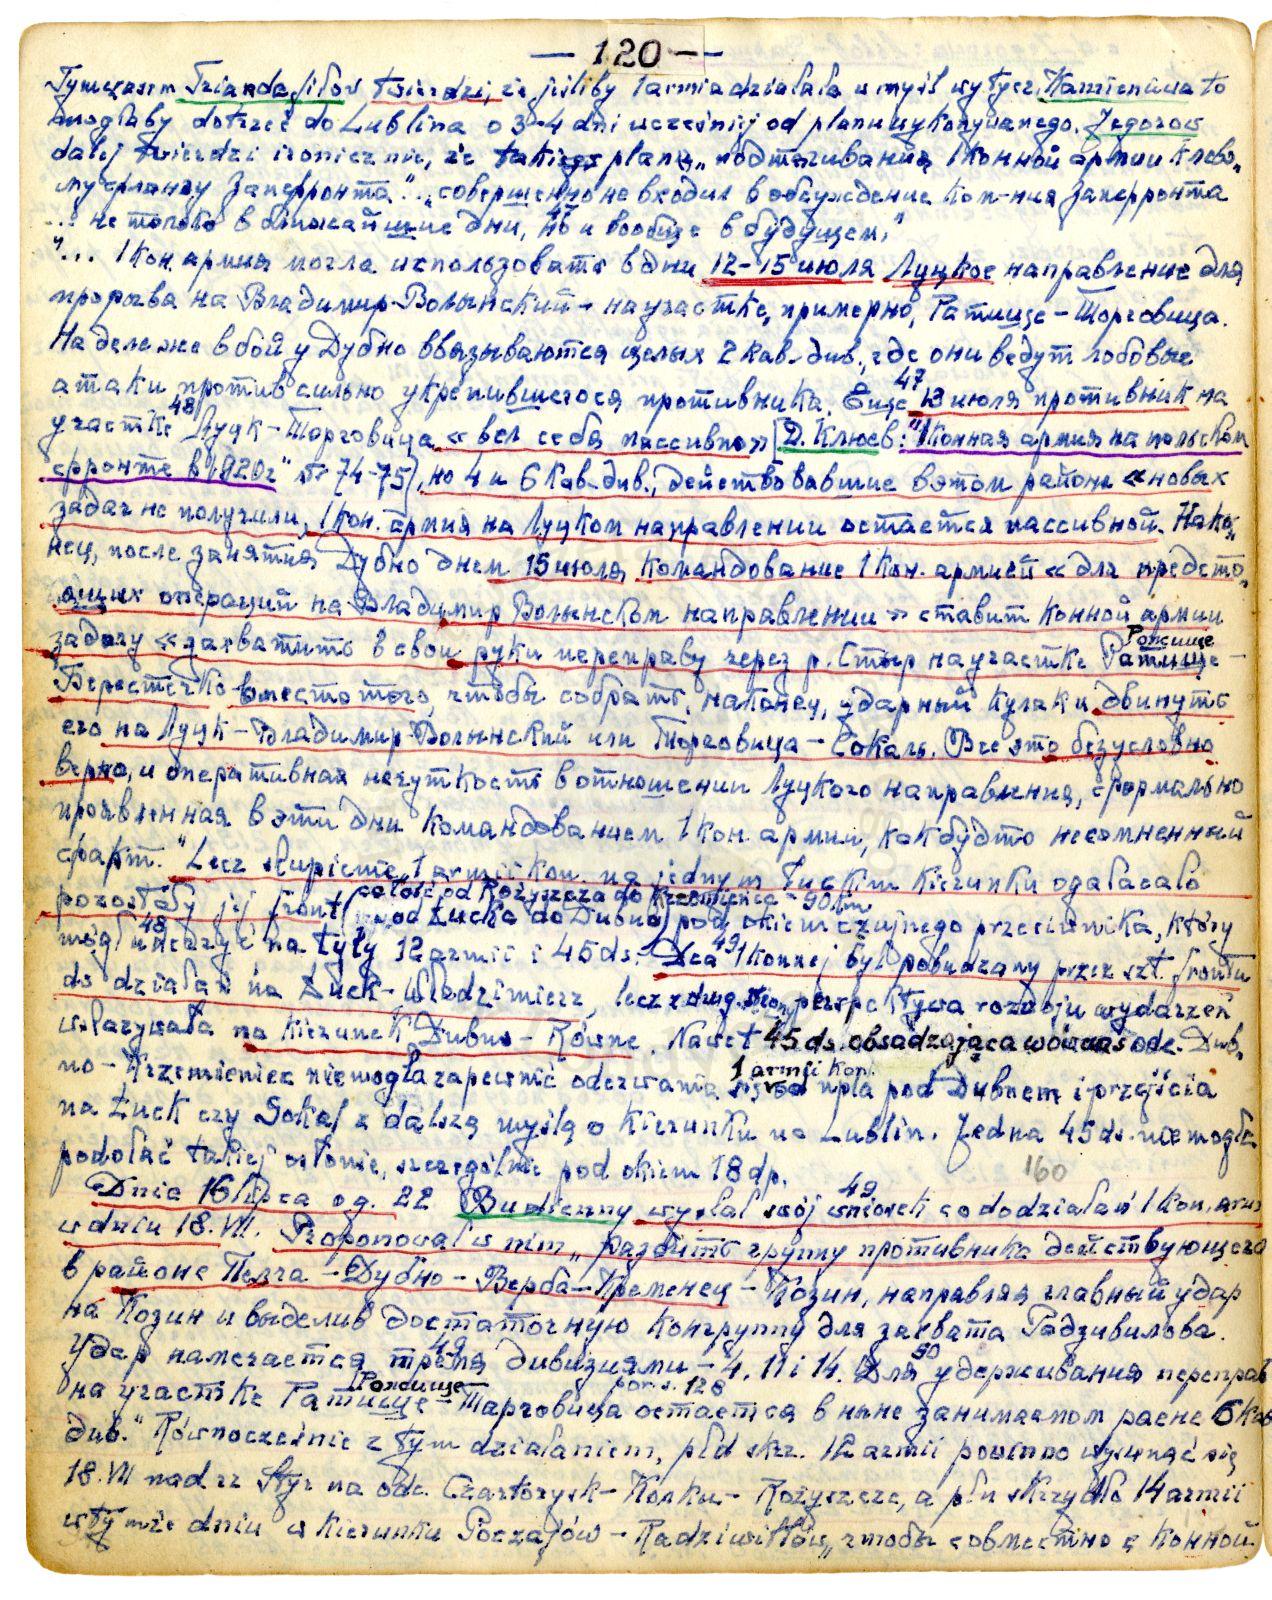 — 120 —
Tymczasem Triandafiłow twierdzi, że jeśliby 1 armia działała w myśl wytycz. Kamieniewa to
mogłaby dotrzeć do Lublina o 3-4 dni wcześniej od planu wykonywanego. Jegorow
dalej twierdzi ironicznie, że takiego planu „подтягивания 1 Конной армии к лево-
му флангу Запфронта"... „совершенно не входил в обсуждение ком-ния Запфронта
... не только в ближайшие дни, но и вообще в будущем."
"... 1 Кон. армия могла использовать в дни 12-15 июля Луцкое направление для
прорыва на Владимир-Волынский - на участке, примерно, Ратище - Торговица.
На деле же в бой у Дубно ввязываются целых 2 кав. див., где они ведут лобовые
47
атаки против сильно укрепившегося противника. Еще 13 июля противник на
48
участке Луцк - Торговица «вел себя пассивно» [Д. Клюев: "1 Конная армия на польском
фронте в 1920г" 74-75], но 4 и 6 Кав. див., действовавшие в этом районе «новых
задач не получили, 1 кон. армия на Луцком направлении остается пассивной. Нако-
нец, после занятия Дубно днем 15 июля, командование 1 Кон. армией «для предсто-
ящих операций на Владимир Волынском направлении» ставит Конной армии
Рожище
задачу «захватить в свои руки переправу через р. Стыр на участке Ратище -
Берестечко вместо того, чтобы собрать, наконец, ударный кулак и двинуть
его на Луцк - Владимир-Волынский или Торговица - Сокаль. Все это безусловно
верно, и оперативная нечуткость в отношении Луцкого направления, формально
проявленная в эти дни командованием 1 кон. армии, как будто несомненный
факт. "Lecz skupienie 1 armii kon. na jednym łuckim kierunku ogałacało
całość od Rożyszcza do Krzemieńca - 90 km
pozostały jej front (od Łucka do Dubna) pod okiem czujnego przeciwnika, który
48
mógł uderzyć na tyły 12 armii i 45 ds. Dca 49 1 konnej był pobudzany przez szt. frontu
do działań na Łuck - Włodzimierz, lecz z drug. stron. perspektywa rozwoju wydarzeń
wskazywała na kierunek Dubno - Równe. Nawet 45 ds. obsadzająca wówczas odc. Dub-
1 armii kon.
no - Krzemieniec nie mogła zapewnić oderwania się od npla pod Dubnem i przejścia
na Łuck czy Sokal z dalszą myślą o kierunku na Lublin. Jedna 45 ds. nie mogła
podołać takiej osłonie, szczególnie pod okiem 18 dp.
160
49
Dnia 16 lipca o g. 22 Budienny wysłał swój wniosek co do działań 1 kon. arm.
w dniu 18. VII. Proponował w nim „разбить группу противника действующего
в районе Пелча - Дубно - Верба - Кременец - Козин, направляя главный удар
на Козин и выделив достаточную конгруппу для захвата Радзивилова.
49 50
Удар намечается тремя дивизиями - 4, 11 i 14. Для удерживания переправ
Рожище por. s. 128
на участке Ратище - Тарговица остается в ныне занимаемом раене 6 кав
див." Równocześnie z tym działaniem, płd skrz. 12 armii powinno wysunąć się
18. VII nad rz Styr na odc. Czartorysk - Kołki - Rożyszcze, a płn skrzydło 14 armii
w tymże dniu w kierunku Poczajów - Radziwiłłów, „чтобы совместно с Конной